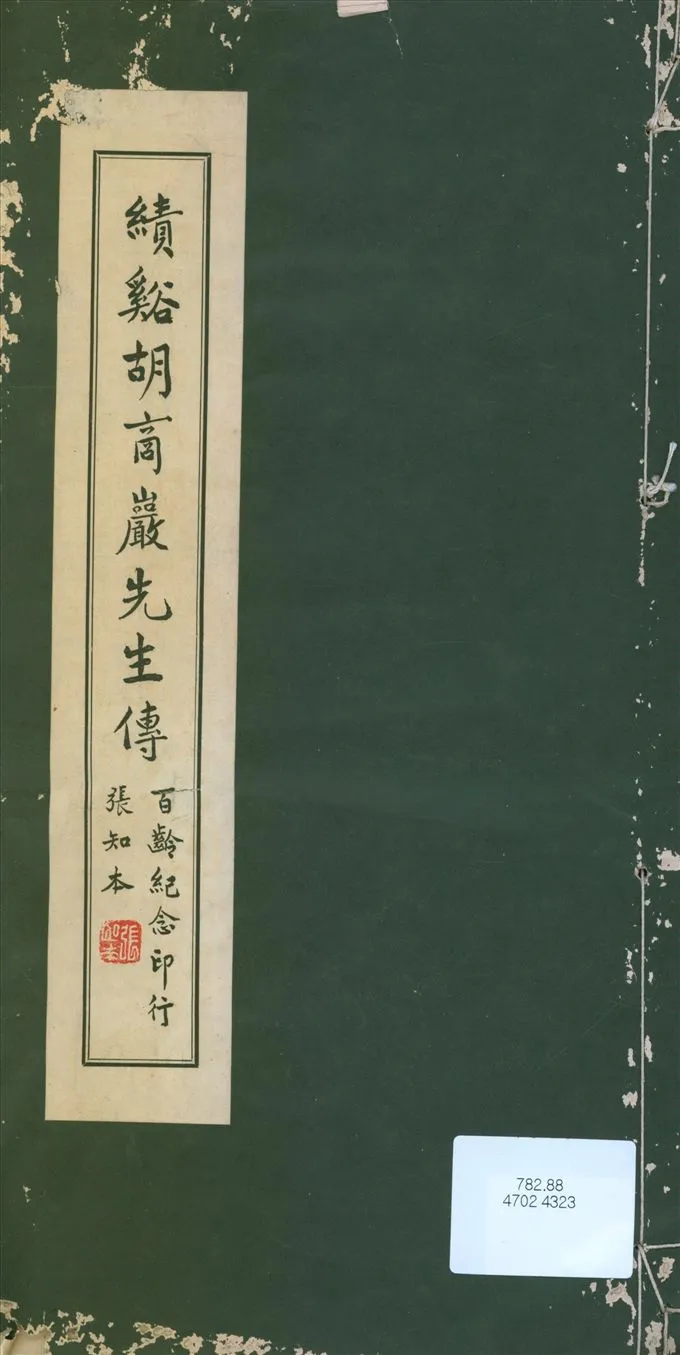 績谿胡商巖先生傳
百齡紀念印行
張知本
張知本
782.88
4702 4323